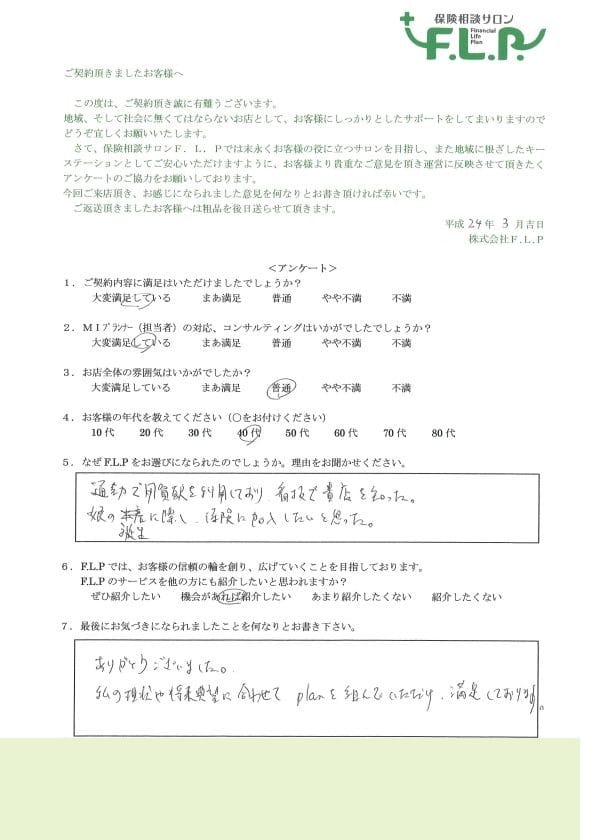 保険相談サロン
F.L.P.
Financial
Life
Plan
ご契約頂きましたお客様へ
この度は、ご契約頂き誠に有難うございます。
地域、そして社会に無くてはならないお店として、お客様にしっかりとしたサポートをしてまいりますので
どうぞ宜しくお願いいたします。
さて、保険相談サロンF．L．Pでは末永くお客様の役に立つサロンを目指し、また地域に根ざしたキー
ステーションとしてご安心いただけますように、お客様より貴重なご意見を頂き運営に反映させて頂きたく
アンケートのご協力をお願いしております。
今回ご来店頂き、お感じになられました意見を何なりとお書き頂ければ幸いです。
ご返送頂きましたお客様へは粗品を後日送らせて頂きます。
平成 24 年 3 月吉日
株式会社F.L.P
＜アンケート＞
1．ご契約内容に満足はいただけましたでしょうか？
大変満足している　まあ満足　普通　やや不満　不満
2．MIプランナー（担当者）の対応、コンサルティングはいかがでしたでしょうか？
大変満足している　まあ満足　普通　やや不満　不満
3．お店全体の雰囲気はいかがでしたか？
大変満足している　まあ満足　普通　やや不満　不満
4．お客様の年代を教えてください（○をお付けください）
10代　20代　30代　40代　50代　60代　70代　80代
5．なぜF.L.Pをお選びになられたのでしょうか。理由をお聞かせください。
通勤で用賀駅を利用しており、看板で貴店を知った。
娘の に際し、保険に加入したいと思った。
誕生
6．F.L.Pでは、お客様の信頼の輪を創り、広げていくことを目指しております。
F.L.Pのサービスを他の方にも紹介したいと思われますか？
ぜひ紹介したい　機会があれば紹介したい　あまり紹介したくない　紹介したくない
7．最後にお気づきになられましたことを何なりとお書き下さい。
ありがとうございました。
私の現状や将来展望に合わせて planを組んでいただけ、満足しております。